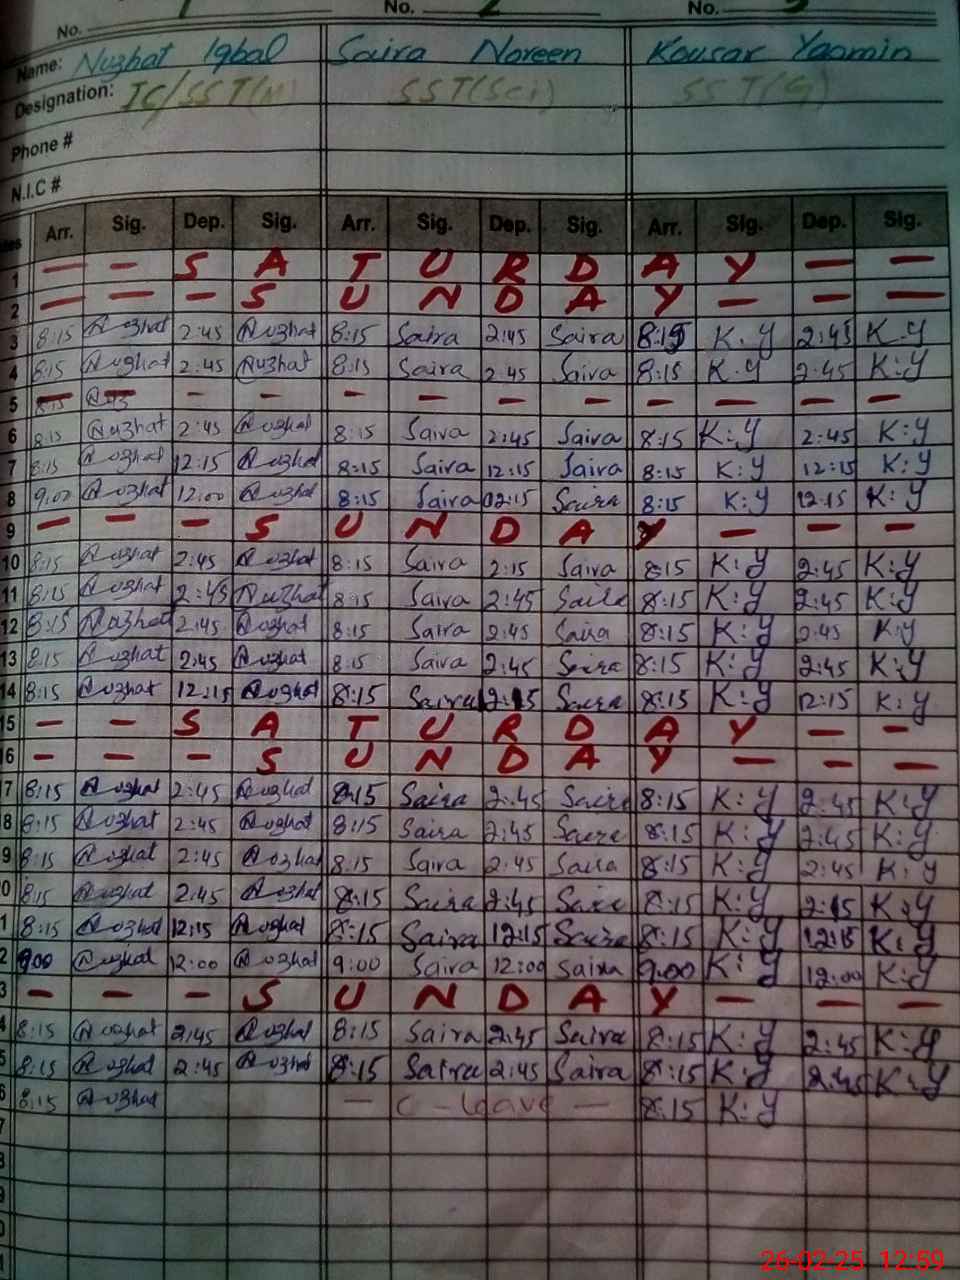 No. 1 No. 2 No. 3
Name: Nuzhat Iqbal Saira Noreen Kousar Yasmin
Designation: IC/SST(M) SST(Sci) SST(G)
Phone #
N.I.C #
Arr. Sig. Dep. Sig. Arr. Sig. Dep. Sig. Arr. Sig. Dep. Sig.
1 — — S A T U R D A Y — —
2 — — — S U N D A Y — — —
3 8:15 Nuzhat 2:45 Nuzhat 8:15 Saira 2:45 Saira 8:15 K.Y 2:45 K.Y
4 8:15 Nuzhat 2:45 Nuzhat 8:15 Saira 2:45 Saira 8:15 K.Y 2:45 K:Y
5 8:15 Nuz — — — — — — — — — —
6 8:15 Nuzhat 2:45 Nuzhat 8:15 Saira 2:45 Saira 8:15 K:Y 2:45 K:Y
7 8:15 Nuzhat 12:15 Nuzhat 8:15 Saira 12:15 Saira 8:15 K:Y 12:15 K:Y
8 9:00 Nuzhat 12:00 Nuzhat 8:15 Saira 12:15 Saira 8:15 K:Y 12:15 K:Y
9 — — — S U N D A Y — — —
10 8:15 Nuzhat 2:45 Nuzhat 8:15 Saira 2:15 Saira 8:15 K:Y 2:45 K:Y
11 8:15 Nuzhat 2:45 Nuzhat 8:15 Saira 2:45 Saira 8:15 K:Y 2:45 K:Y
12 8:15 Nuzhat 2:45 Nuzhat 8:15 Saira 2:45 Saira 8:15 K:Y 2:45 K:Y
13 8:15 Nuzhat 2:45 Nuzhat 8:15 Saira 2:45 Saira 8:15 K:Y 2:45 K:Y
14 8:15 Nuzhat 12:15 Nuzhat 8:15 Saira 12:15 Saira 8:15 K:Y 12:15 K:Y
15 — — S A T U R D A Y — —
6 — — — S U N D A Y — — —
7 8:15 Nuzhat 2:45 Nuzhat 8:15 Saira 2:45 Saira 8:15 K:Y 2:45 K:Y
8 8:15 Nuzhat 2:45 Nuzhat 8:15 Saira 2:45 Saira 8:15 K:Y 2:45 K:Y
9 8:15 Nuzhat 2:45 Nuzhat 8:15 Saira 2:45 Saira 8:15 K:Y 2:45 K:Y
0 8:15 Nuzhat 2:45 Nuzhat 8:15 Saira 2:45 Saira 8:15 K:Y 2:45 K:Y
1 8:15 Nuzhat 12:15 Nuzhat 8:15 Saira 12:15 Saira 8:15 K:Y 12:15 K:Y
2 9:00 Nuzhat 12:00 Nuzhat 9:00 Saira 12:00 Saira 9:00 K:Y 12:00 K:Y
3 — — — S U N D A Y — — —
4 8:15 Nuzhat 2:45 Nuzhat 8:15 Saira 2:45 Saira 8:15 K:Y 2:45 K:Y
5 8:15 Nuzhat 2:45 Nuzhat 8:15 Saira 2:45 Saira 8:15 K:Y 2:45 K:Y
6 8:15 Nuzhat — C - leave — 8:15 K:Y
7
8
9
0
1
26-02-25 12:59